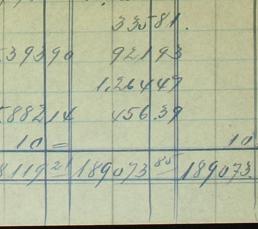 33581.
39390 92193
1,26447
88214 45639
10 = 10
8119 21 189073 80 189073.